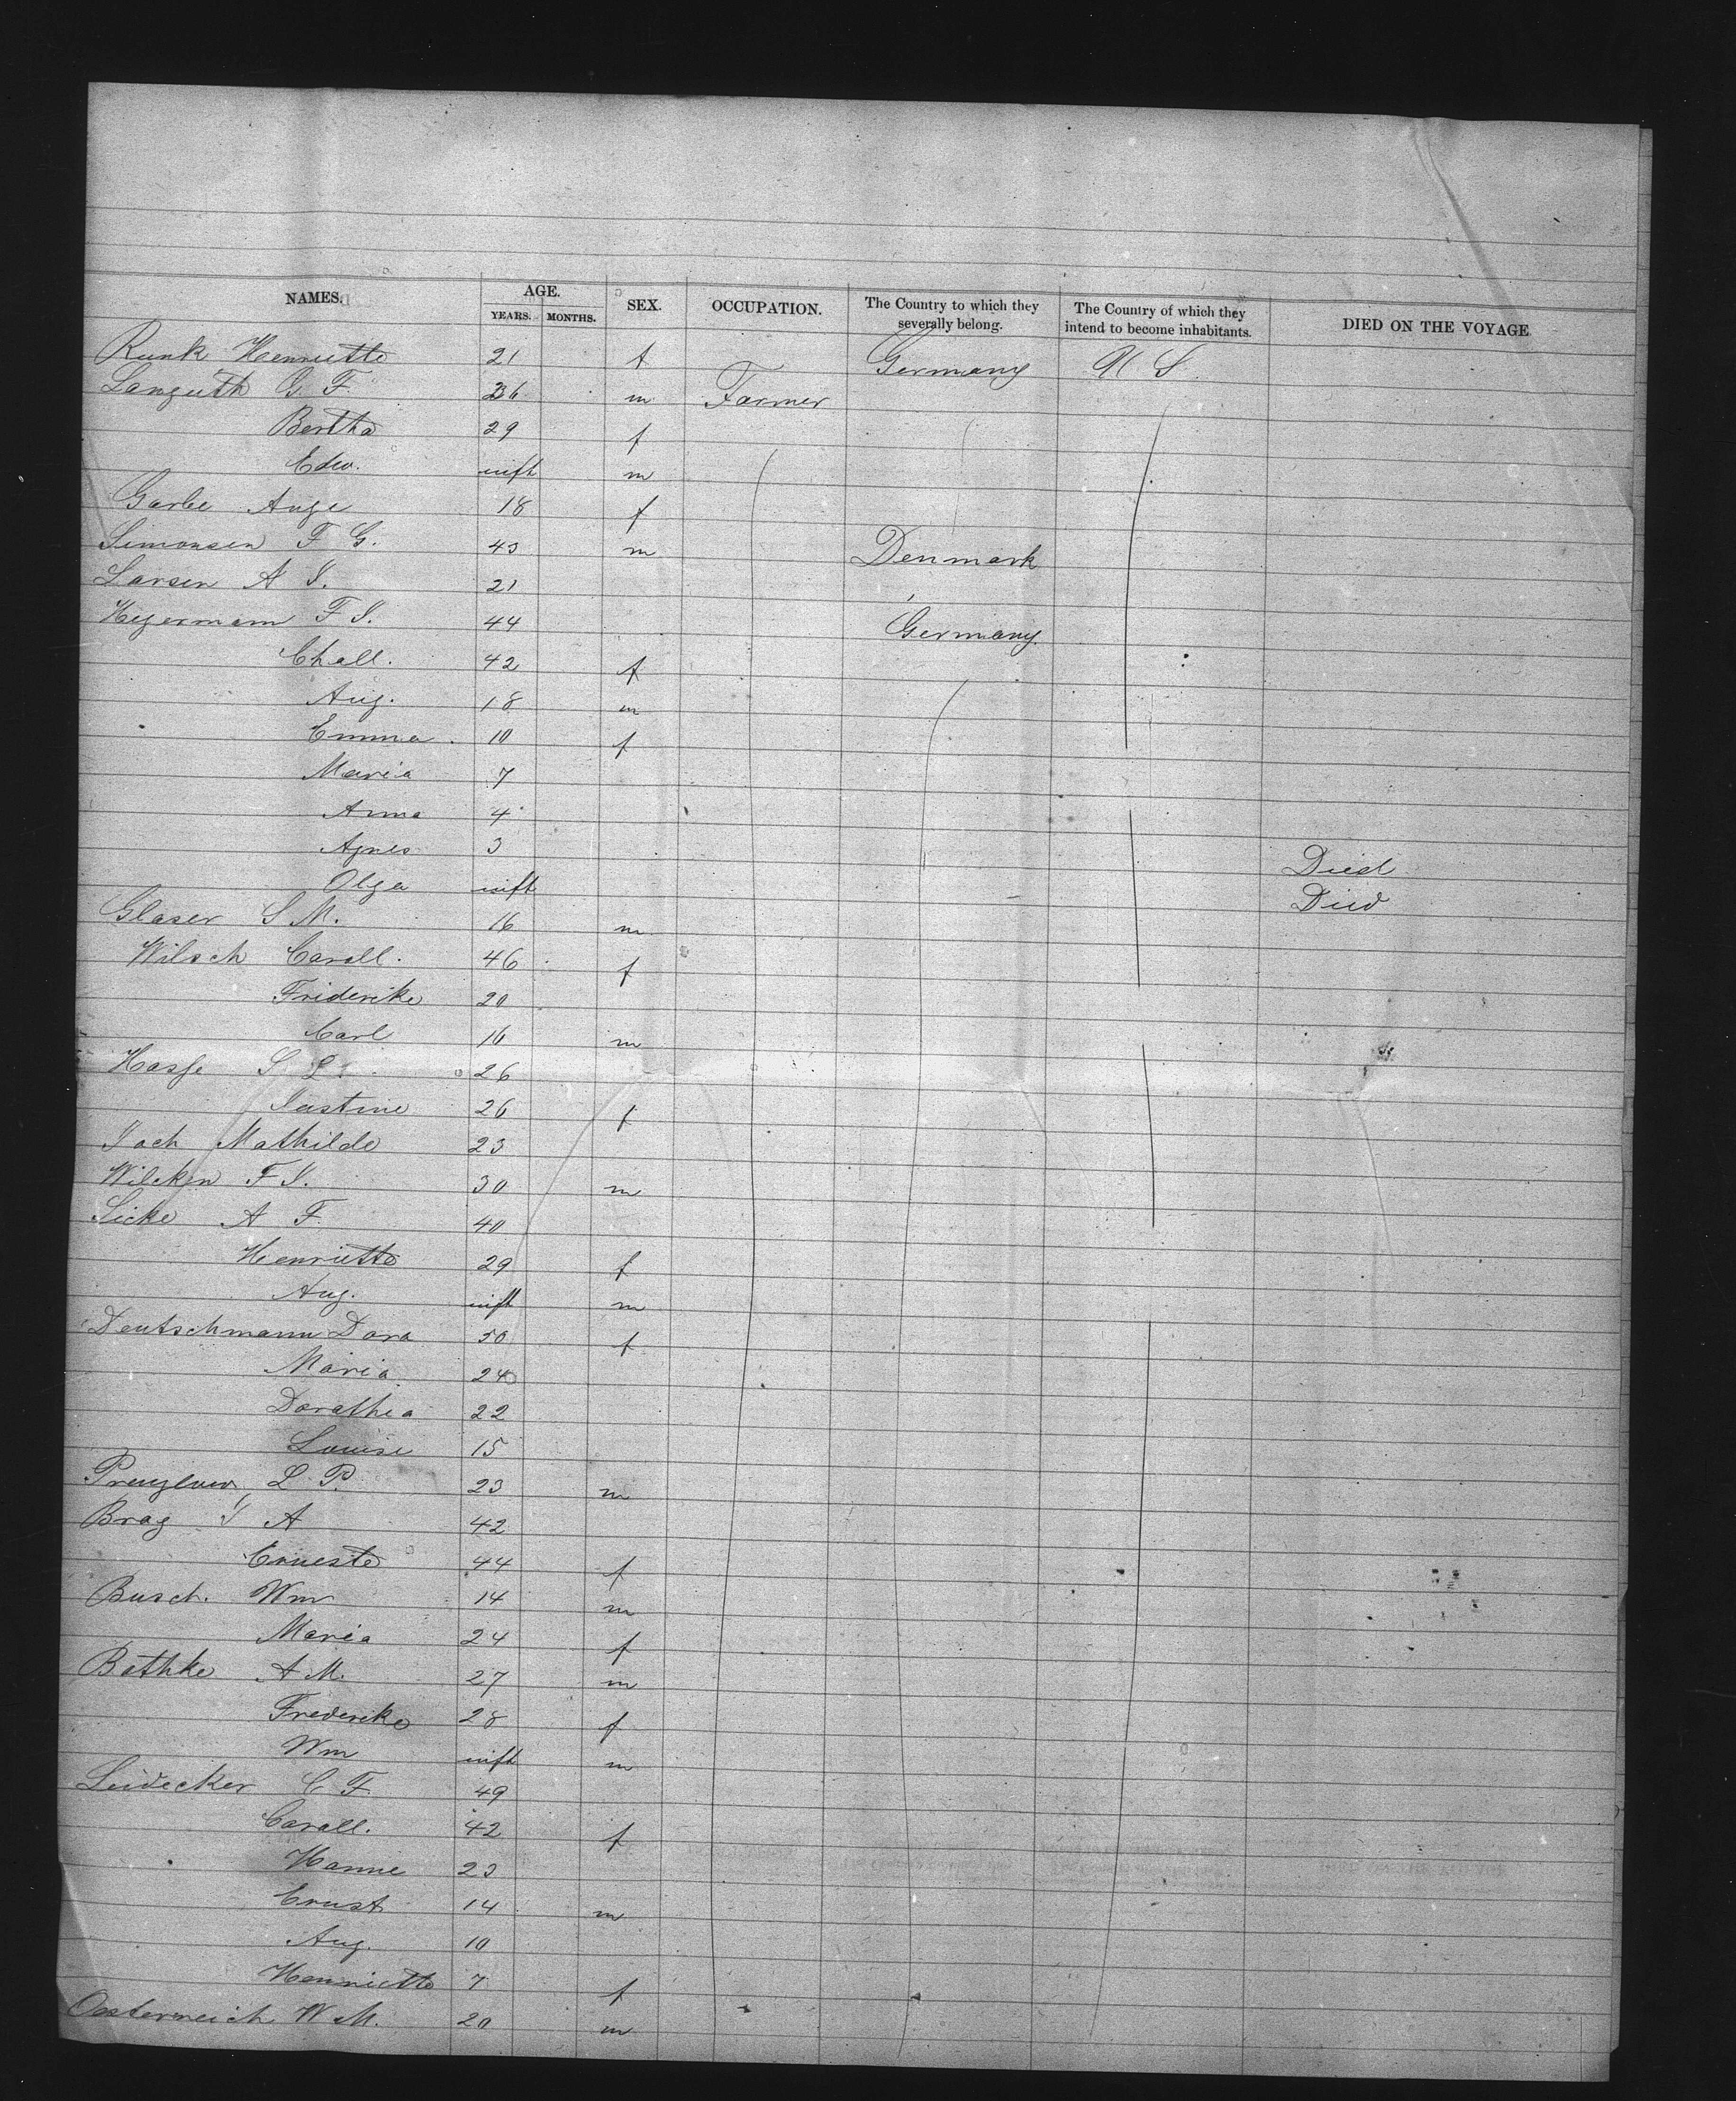 NAMES. AGE. SEX. OCCUPATION. The Country to which they severally belong. The Country of which they intend to become inhabitants. DIED ON THE VOYAGE
YEARS. MONTHS.
Runk Henriette 21 f Germany U S
Languth G. F. 36 m Farmer
Bertha 29 f
Edw. inft m
Garbe Auge 18 f
Simonsen F G. 43 m Denmark
Larsen A J. 21
Hegermann F J. 44 Germany
Chall. 42 f
Aug. 18 m
Emma 10 f
Maria 7
Anna 4
Agnes 3 Died
Olga inft Died
Glaser S M. 16 m
Wilsch Caroll. 46 f
Friderike 20
Carl 16 m
Hasse S L. 26
Justine 26 f
Joch Mathilde 23
Wilcken F J. 30 m
Licke A F. 40
Henriette 29 f
Aug. inft m
Deutschmann Dora 50 f
Maria 24
Dorathea 22
Louise 15
L P. 23 m
Brag J A 42
Erneste 44 f
Busch. Wm 14 m
Maria 24 f
Bathke A M. 27 m
Frederike 28 f
Wm inft m
Leidecker C F. 49
Caroll. 42 f
Hanne 23
Ernst 14 m
Aug. 10
Henriette 7 f
Oesterreich W M. 20 m